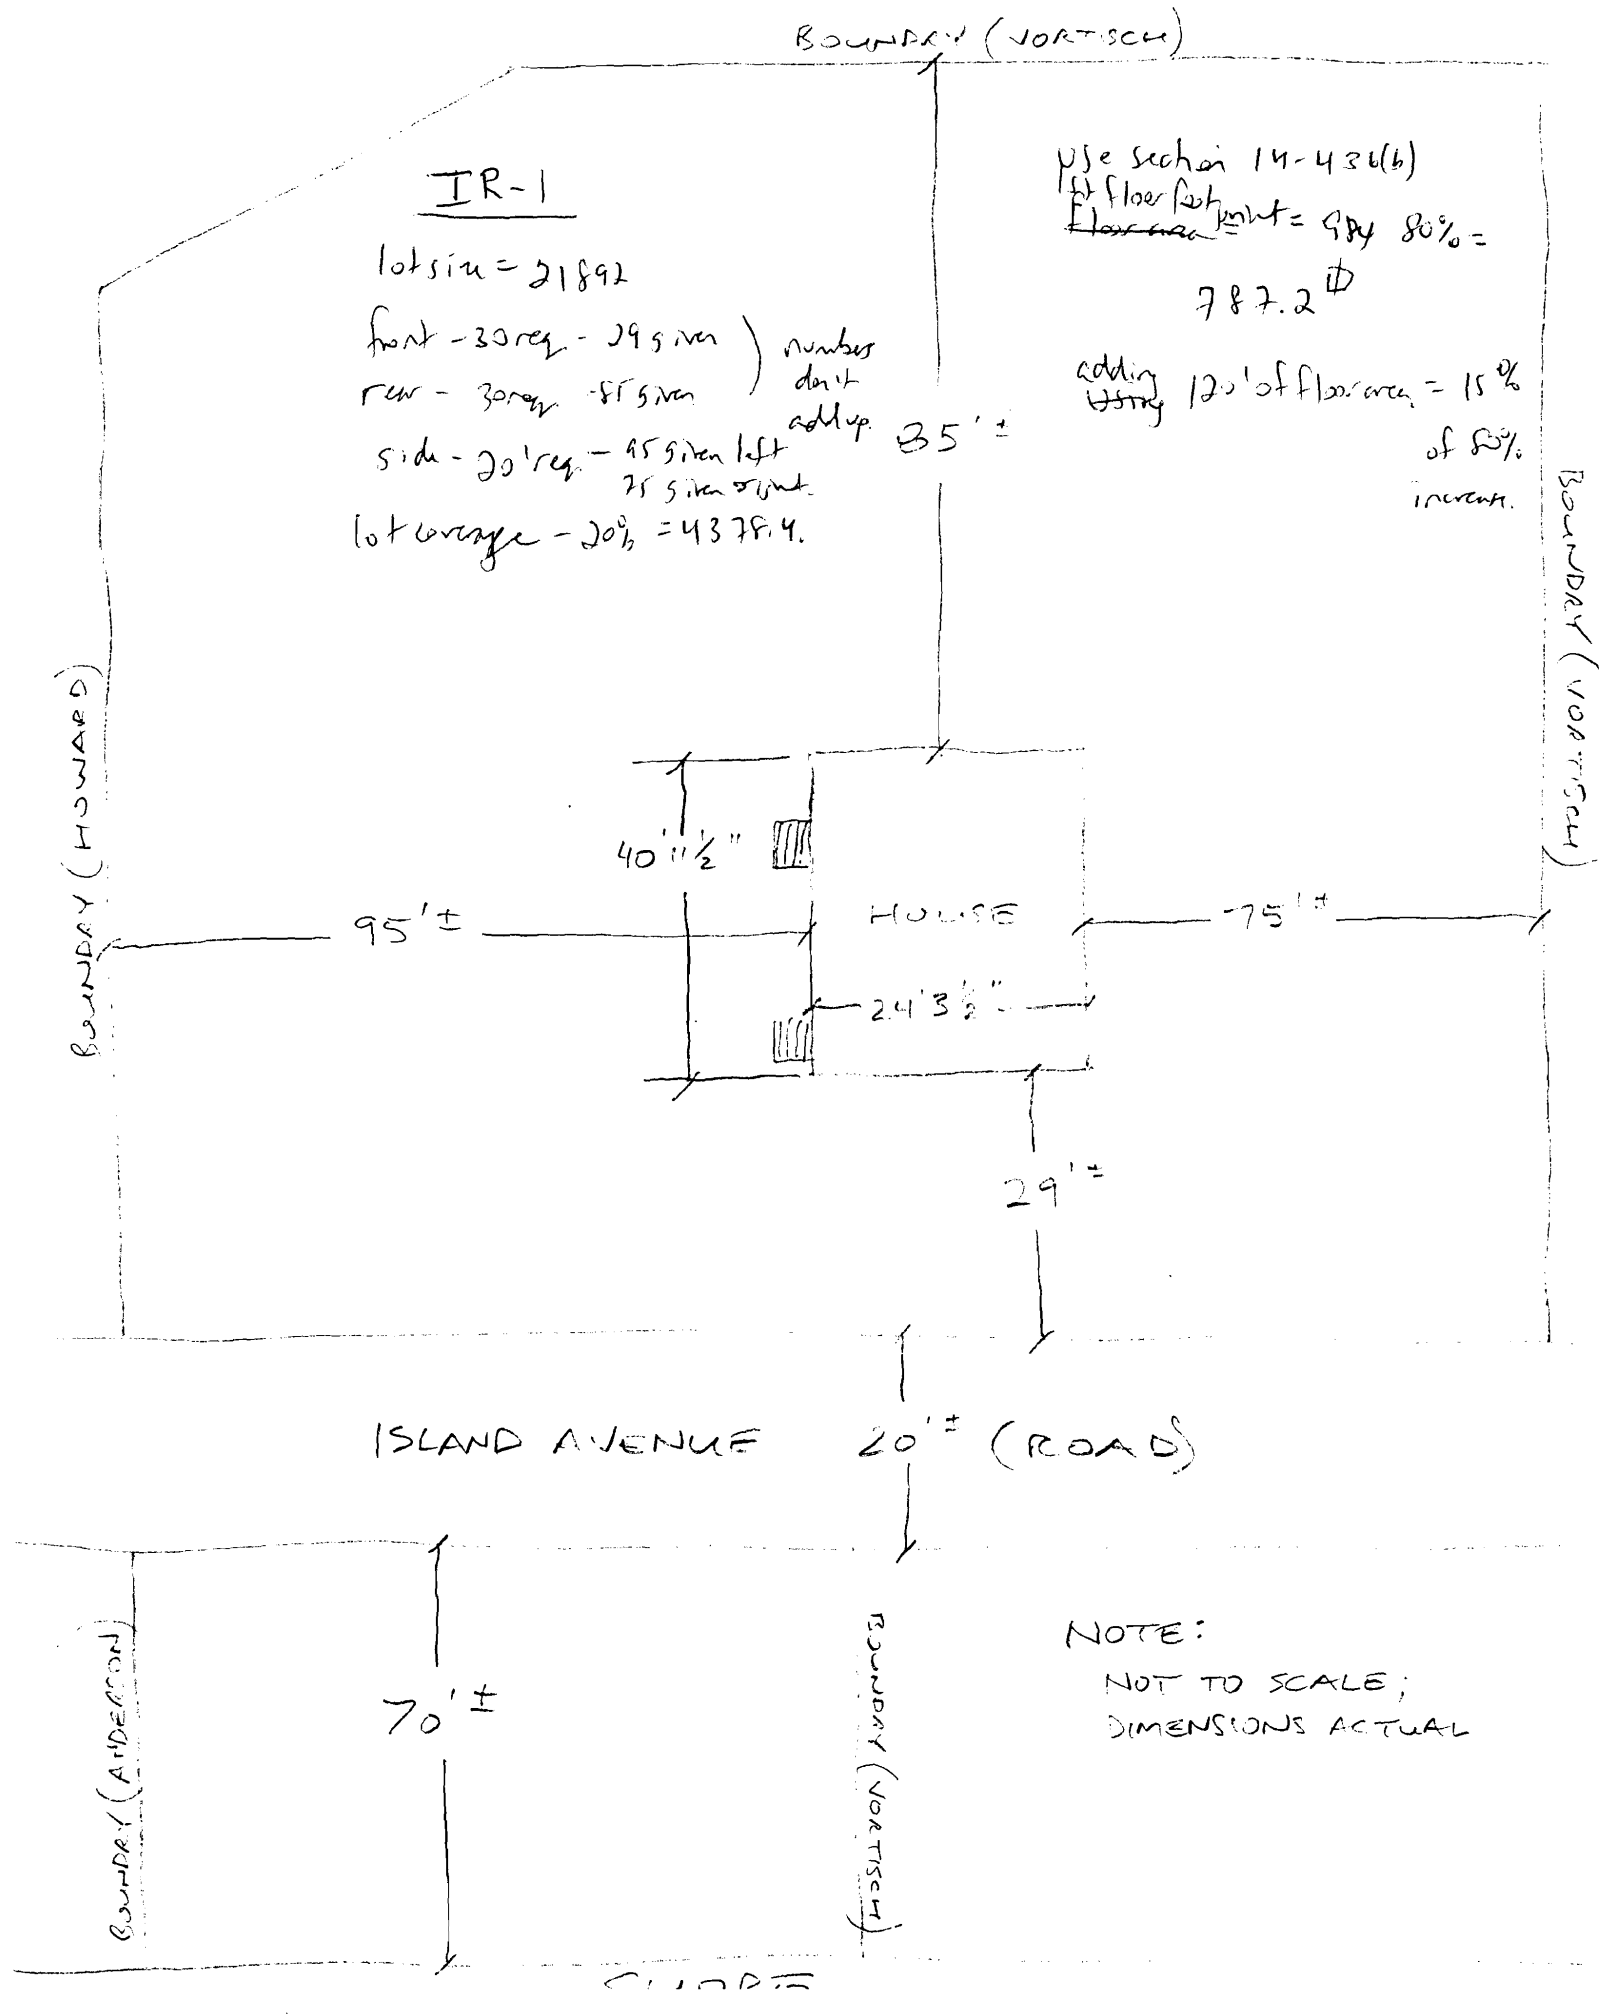 BOUNDRY (VORTISCH)
IR-1
lot size = 21892
front - 30 req. - 29 given
rear - 30 req. - 85 given
numbers
don't
add up.
side - 20' req. - 95 given left
75 given right.
lot coverage - 20% = 4378.4.
use section 14-436(b)
1st floor footprint = 984 80% =
floor area =
787.2
adding
using
120' of floor area = 15%
of 80%
increase.
85' ±
BOUNDRY (HOWARD)
BOUNDRY (VORTISCH)
40' 11 1/2"
95' ±
HOUSE
75' ±
24' 3 1/2"
29' ±
ISLAND AVENUE 20' ± (ROAD)
BOUNDRY (ANDERSON)
70' ±
BOUNDRY (VORTISCH)
NOTE:
NOT TO SCALE;
DIMENSIONS ACTUAL